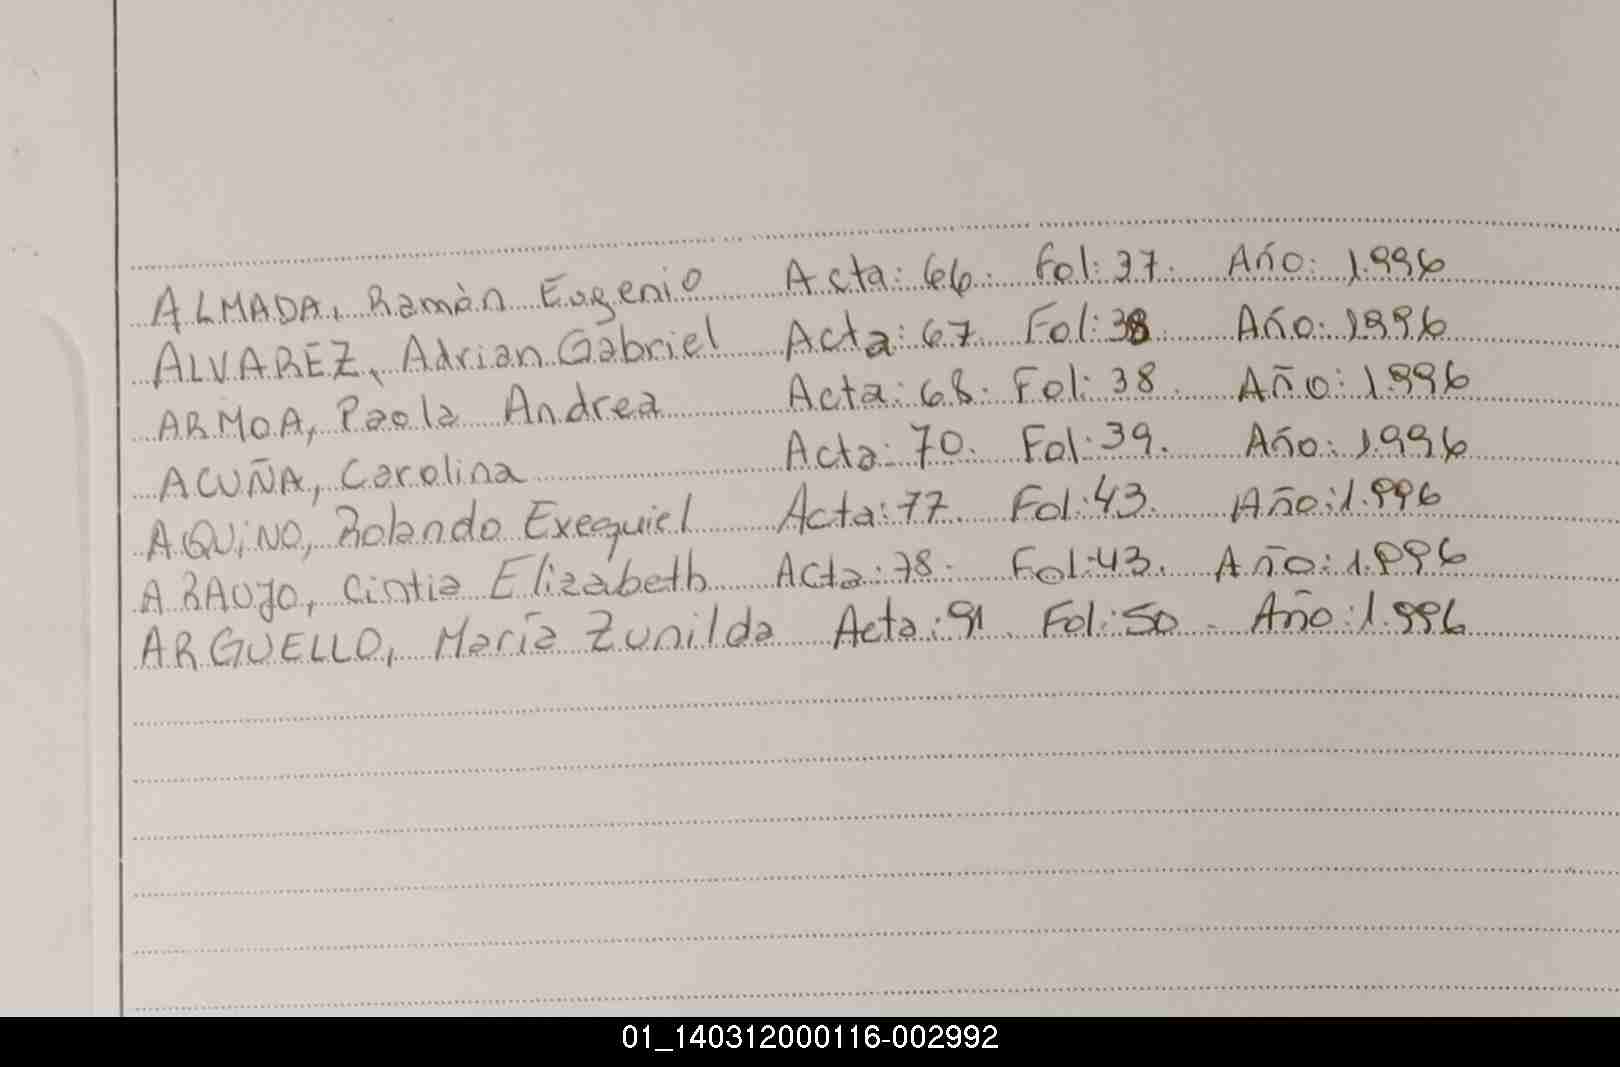 ALMADA, Ramòn Eugenio Acta: 66. Fol: 37. Año: 1.996
ALVAREZ, Adrian Gabriel Acta: 67 Fol: 38. Año: 1996
ARMOA, Paola Andrea Acta: 68. Fol: 38. Año: 1.996
ACUÑA, Carolina Acta: 70. Fol: 39. Año: 1.996
AQUiNO, Rolando Exequiel Acta: 77. Fol: 43. Año: 1.996
ARAUJO, Cintia Elizabeth Acta: 78. Fol: 43. Año: 1.996
ARGUELLO, María Zunilda Acta: 91. Fol: 50. Año: 1.996
01_140312000116-002992